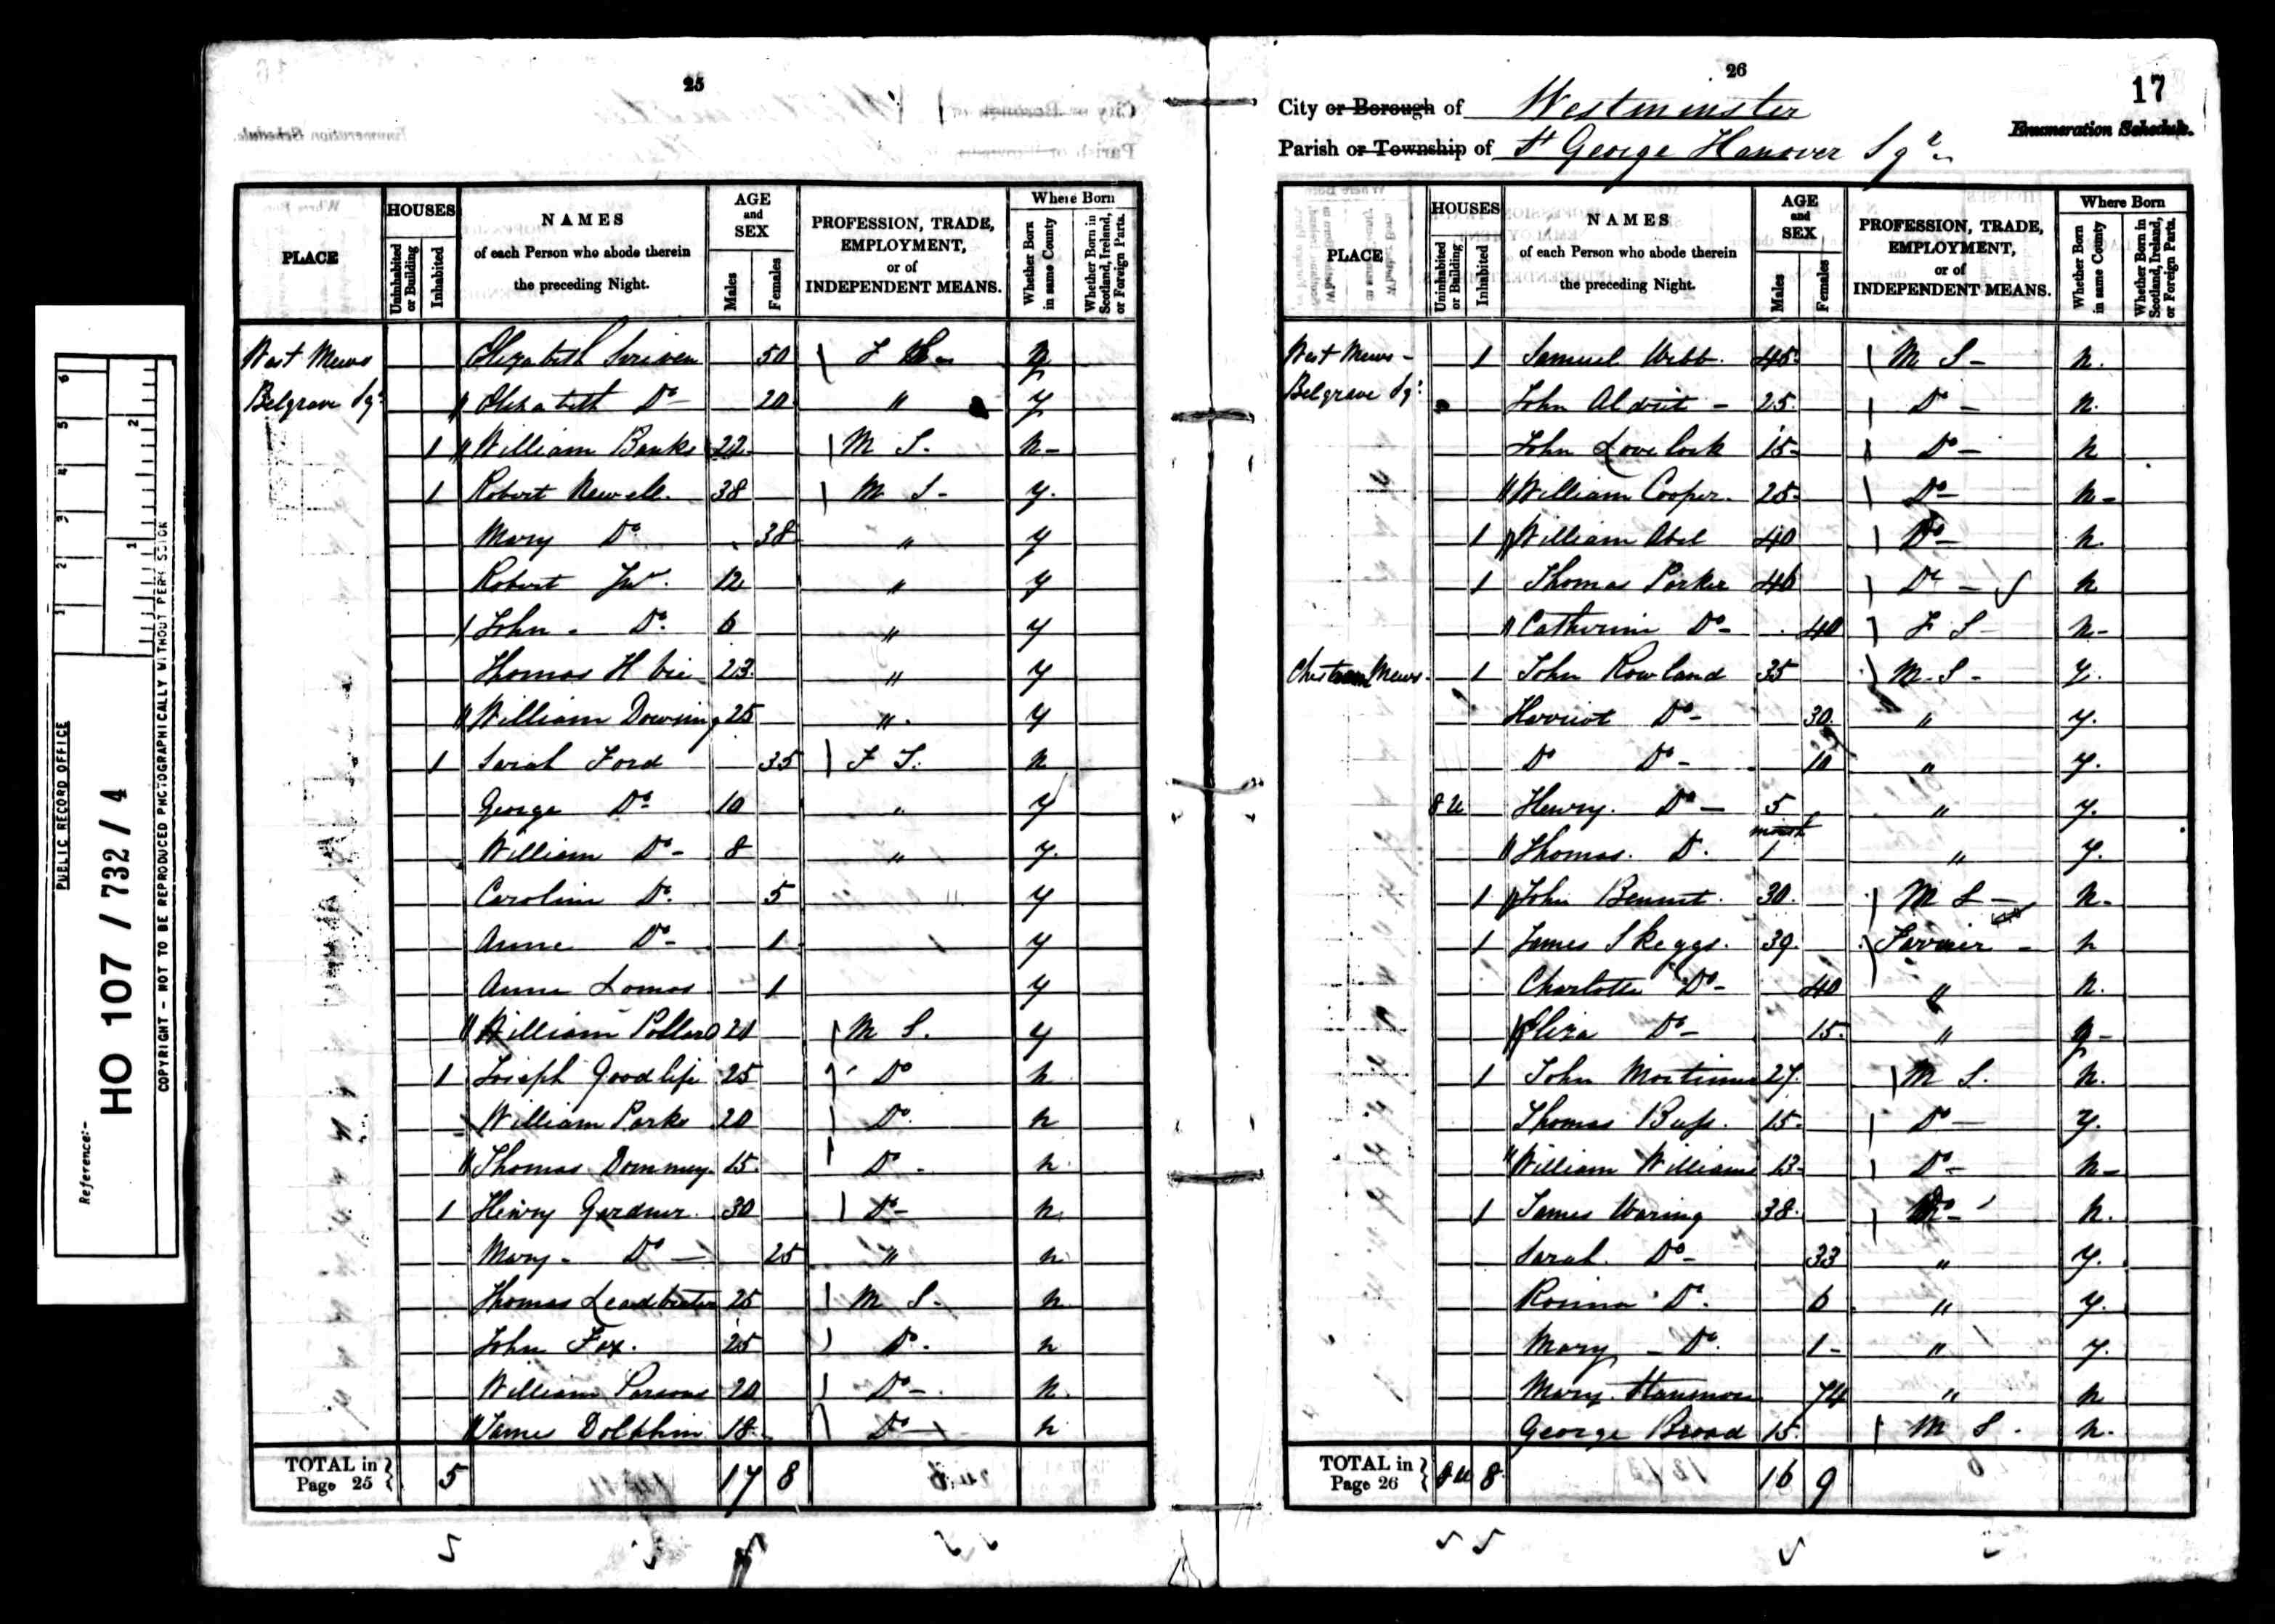 PUBLIC RECORD OFFICE
Reference:-
HO 107 / 732 / 4
COPYRIGHT - NOT TO BE REPRODUCED PHOTOGRAPHICALLY WITHOUT PERMISSION
25
PLACE HOUSES Uninhabited or Building Inhabited NAMES of each Person who abode therein the preceding Night. AGE and SEX Males Females PROFESSION, TRADE, EMPLOYMENT, or of INDEPENDENT MEANS. Where Born Whether Born in same County Whether Born in Scotland, Ireland, or Foreign Parts.
West Mews Elizabeth Scriven 50 F y
Belgrave Sqr Elizabeth Do 20 " y
1 William Banks 22 M S. n
1 Robert Newell 38 M S y.
Mary Do 38 " y
Robert Junr. 12 " y
John Do 6 " y
Thomas H 23 " y
William Dowsing 25 " y
1 Sarah Ford 35 F S. n
George Do 10 " y
William Do 8 " y.
Caroline Do 5 y
Anne Do 1 y
Anne Lomas 1 y
William Pollard 20 M S. y
1 Joseph Goodlife 25 Do n
William Parks 20 Do n
Thomas Dommey 15 Do n
1 Henry Gardner 30 Do n
Mary Do 25 " n
Thomas Leadbeater 25 M S n
John Fox. 25 Do n
William Parsons 20 Do n.
James Dolphin 18 Do n
TOTAL in Page 25 5 17 8
26
17
City or Borough of Westminster
Enumeration Schedule.
Parish or Township of St George Hanover Sqr
PLACE HOUSES Uninhabited or Building Inhabited NAMES of each Person who abode therein the preceding Night. AGE and SEX Males Females PROFESSION, TRADE, EMPLOYMENT, or of INDEPENDENT MEANS. Where Born Whether Born in same County Whether Born in Scotland, Ireland, or Foreign Parts.
West Mews 1 Samuel Webb 45 M S n.
Belgrave Sqr John Aldrit 25 Do n.
John Lovelock 15 Do n
William Cooper. 25 Do n
1 William Abel 40 Do n.
1 Thomas Parker 46 Do n
Catherine Do 40 F S n
Mews 1 John Rowland 35 M S y.
Harriot Do 30 " y.
Do Do 10 " y.
8 U Henry. Do 5 " y.
Thomas. Do month 1 " y.
1 John Bennet. 30 M S n.
1 James Skeggs. 39 Farrier n
Charlotte Do 40 " n.
Eliza Do 15 " y
1 John Mortimer 27 M S. n.
Thomas Bass. 15 Do y.
William Williams 13 Do n
1 James Waring 38 Do n.
Sarah Do 33 " y.
Rosina Do 6 " y.
Mary Do 1 " y.
Mary 74 " n
George Broad 15 M S. n.
TOTAL in Page 26 8 U 8 16 9